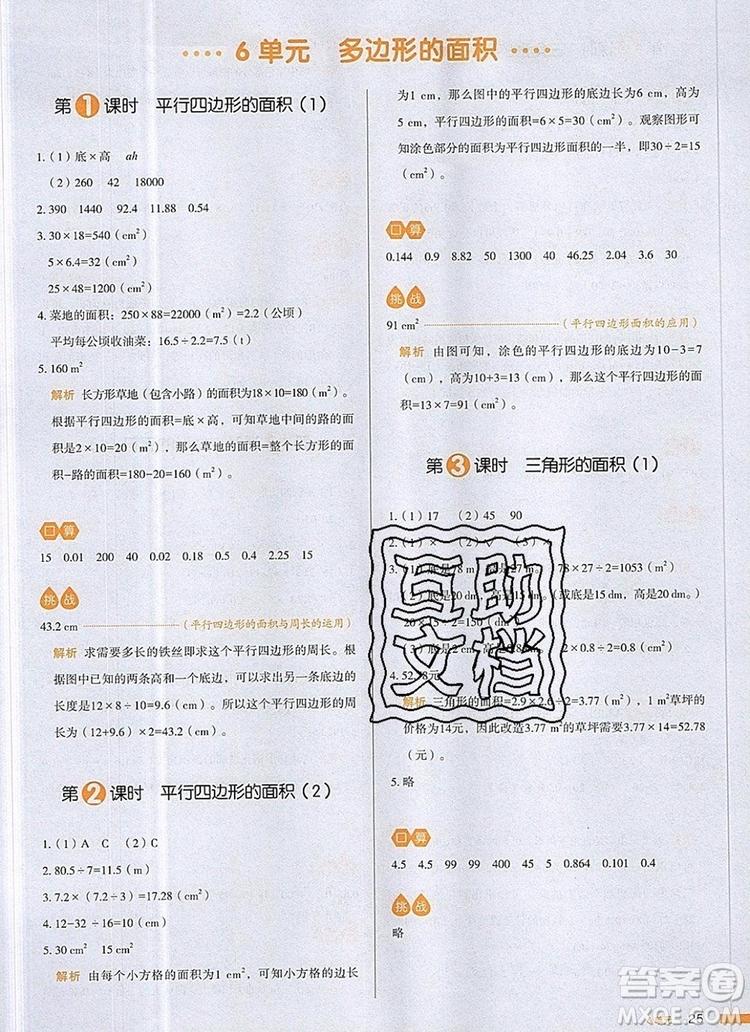 6 单元 多边形的面积
第1课时 平行四边形的面积（1）
1.（1）底×高 ah
（2）260 42 18000
2. 390 1440 92.4 11.88 0.54
3. 30×18=540（cm²）
5×6.4=32（cm²）
25×48=1200（cm²）
4. 菜地的面积：250×88=22000（m²）=2.2（公顷）
平均每公顷收油菜：16.5÷2.2=7.5（t）
5. 160 m²
解析 长方形草地（包含小路）的面积为18×10=180（m²）。
根据平行四边形的面积=底×高，可知草地中间的路的面
积是2×10=20（m²），那么草地的面积=整个长方形的面
积-路的面积=180-20=160（m²）。
口算
15 0.01 200 40 0.02 0.18 0.48 2.1 2.25 15
挑战
43.2 cm （平行四边形的面积与周长的运用）
解析 求需要多长的铁丝即求这个平行四边形的周长。根
据图中已知的两条高和一个底边，可知平行四边形的底边
的长度是12×8÷10=9.6（cm）。所以这个平行四边形的周
长为（12+9.6）×2=43.2（cm）。
第2课时 平行四边形的面积（2）
1.（1）A C （2）C
2. 80.5÷7=11.5（m）
3. 7.2×（7.2÷3）=17.28（cm²）
4. 12-32÷16=10（cm）
5. 30 cm² 15 cm²
解析 由每个小方格的面积为1 cm²，可知小方格的边长
为1 cm，那么图中的平行四边形的底边长为6 cm，高为
5 cm，平行四边形的面积=6×5=30（cm²）。观察图形可
知涂色部分的面积是平行四边形面积的一半，即30÷2=15
（cm²）。
口算
0.144 0.9 8.82 50 1300 40 46.25 2.04 3.6 30
挑战
91 cm² （平行四边形面积的应用）
解析 由图可知，涂色的平行四边形的底边为10-3=7
（cm），高为10+3=13（cm），那么涂色的平行四边形的面
积=13×7=91（cm²）。
第3课时 三角形的面积（1）
1.（1）17 （2）45 90
2.（1）× （2）√ （3）
3.（1）底是78 m，高是27 m 78×27÷2=1053（m²）
（2）底是15 dm，高是20 dm。（或底是20 dm，高是15 dm。）
20×15÷2=150（dm²）
（3）底是2.8 cm，高是 2×2.8÷2=2.8（cm²）
4. 52.78元
解析 三角形的面积=2.9×2.6÷2=3.77（m²），1 m²草坪的
价格为14元，因此改造3.77 m²的草坪需要3.77×14=52.78
（元）。
5. 略
口算
4.5 4.5 99 99 400 45 5 0.864 0.101 0.4
挑战
略
互助
文档
答案圈
MXQE.COM
25